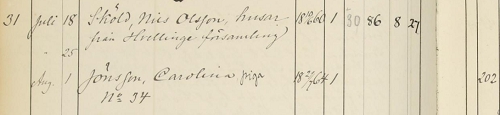 31 Juli 18 Sköld, Nils Olsson, husar 18 60 1 80 86 8 27
från Hvellinge församling
" 25
Aug. 1 Jönsson, Carolina piga 18 64 1 202
No 34